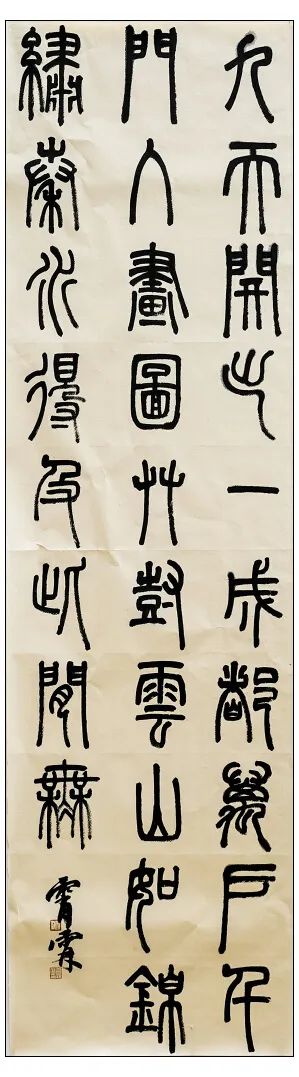 九天開出一成都萬戶千
門入畫圖艸樹雲山如錦
繡秦川得及此間無